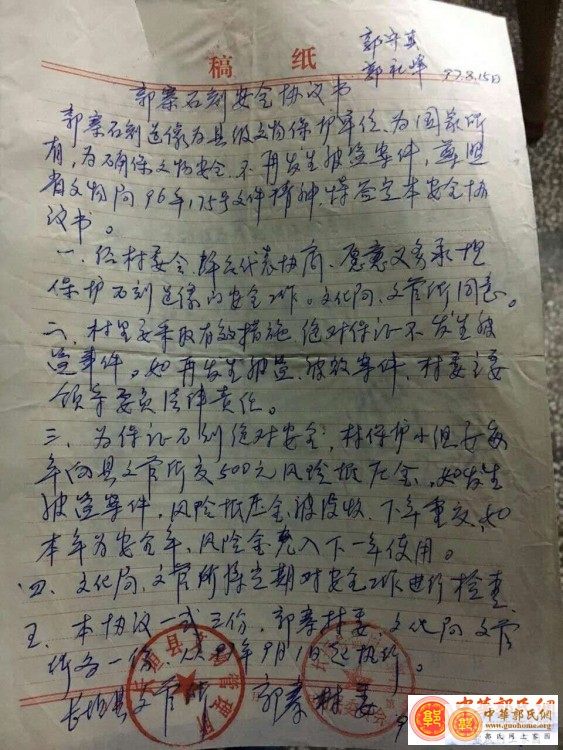 稿 纸
郭守真
郭礼峰 97.8.15日
郭寨石刻安全协议书
郭寨石刻造像为县级文物保护单位,为国家所
有,为确保文物安全,不再发生被盗案件,兹照
省文物局96年175号文件精神,特签定本安全协
议书。
一、经村委会、群众代表协商,愿意义务承担
保护石刻造像的安全工作。文化局、文管所同意。
二、村里要采取有效措施,绝对保证不发生被
盗事件。如再发生被盗、被毁案件,村委主要
领导要负法律责任。
三、为保证石刻绝对安全,村保护小组要每
年向县文管所交500元风险抵压金,如发生
被盗案件,风险抵压金被没收,下年重交,如
本年为安全年,风险金充入下一年使用。
四、文化局、文管所将定期对安全工作进行检查
五、本协议一式三份,郭寨村委、文化局、文管
所各一份,从97年9月1日起执行。
长垣县文管所 郭寨村委
中華郭氏網
www.guohome.org
郭氏网上家园